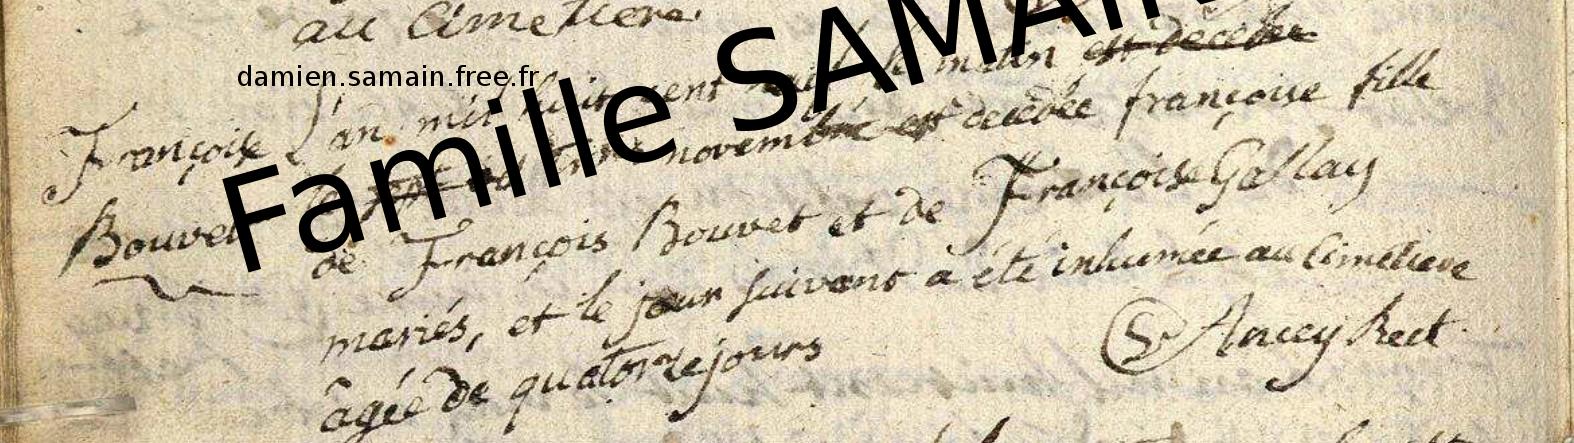 au Cimetiere.
damien.samain.free.fr
Famille SAMAIN
Françoise
Bouvet
L'an mil huit cent le matin est décédée
novembre est decedée françoise fille
de François Bouvet et de Françoise Gallay
mariés, et le jour suivant a été inhumée au Cimetiere
âgée de quatorze jours
Ancey Rect.